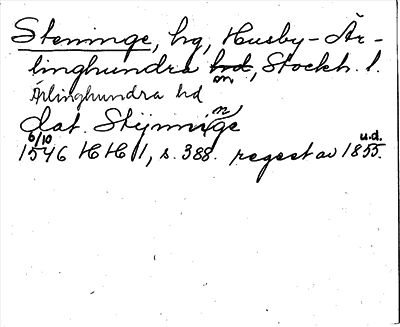 Steninge, hg, Husby-Är-
linghundra hd, Stockh. l.
sn
Ärlinghundra hd
dat. Stijnninge
6/10 u.d.
1546 HH 1, s. 388. regest av 1855.